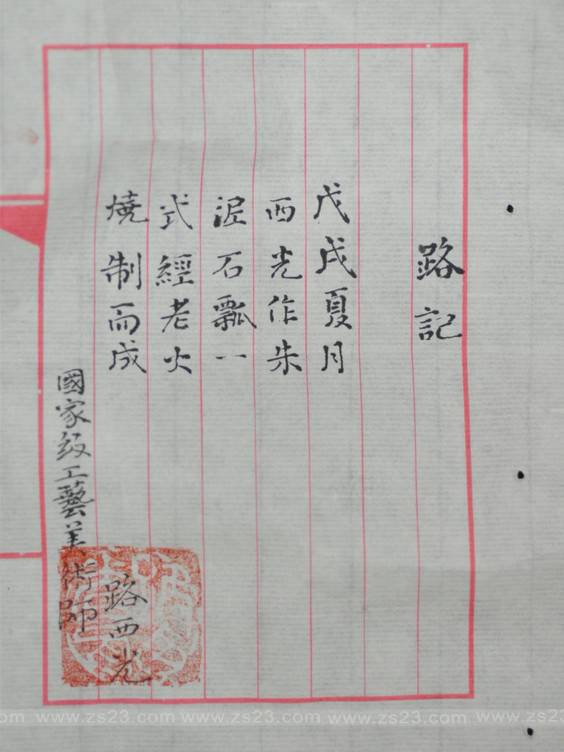 路記
戊戌夏月
西光作朱
泥石瓢一
式經老火
燒制而成
路西光
國家级工藝美術師
.com www.zs23.com www.zs23.com www.zs23.com www.z